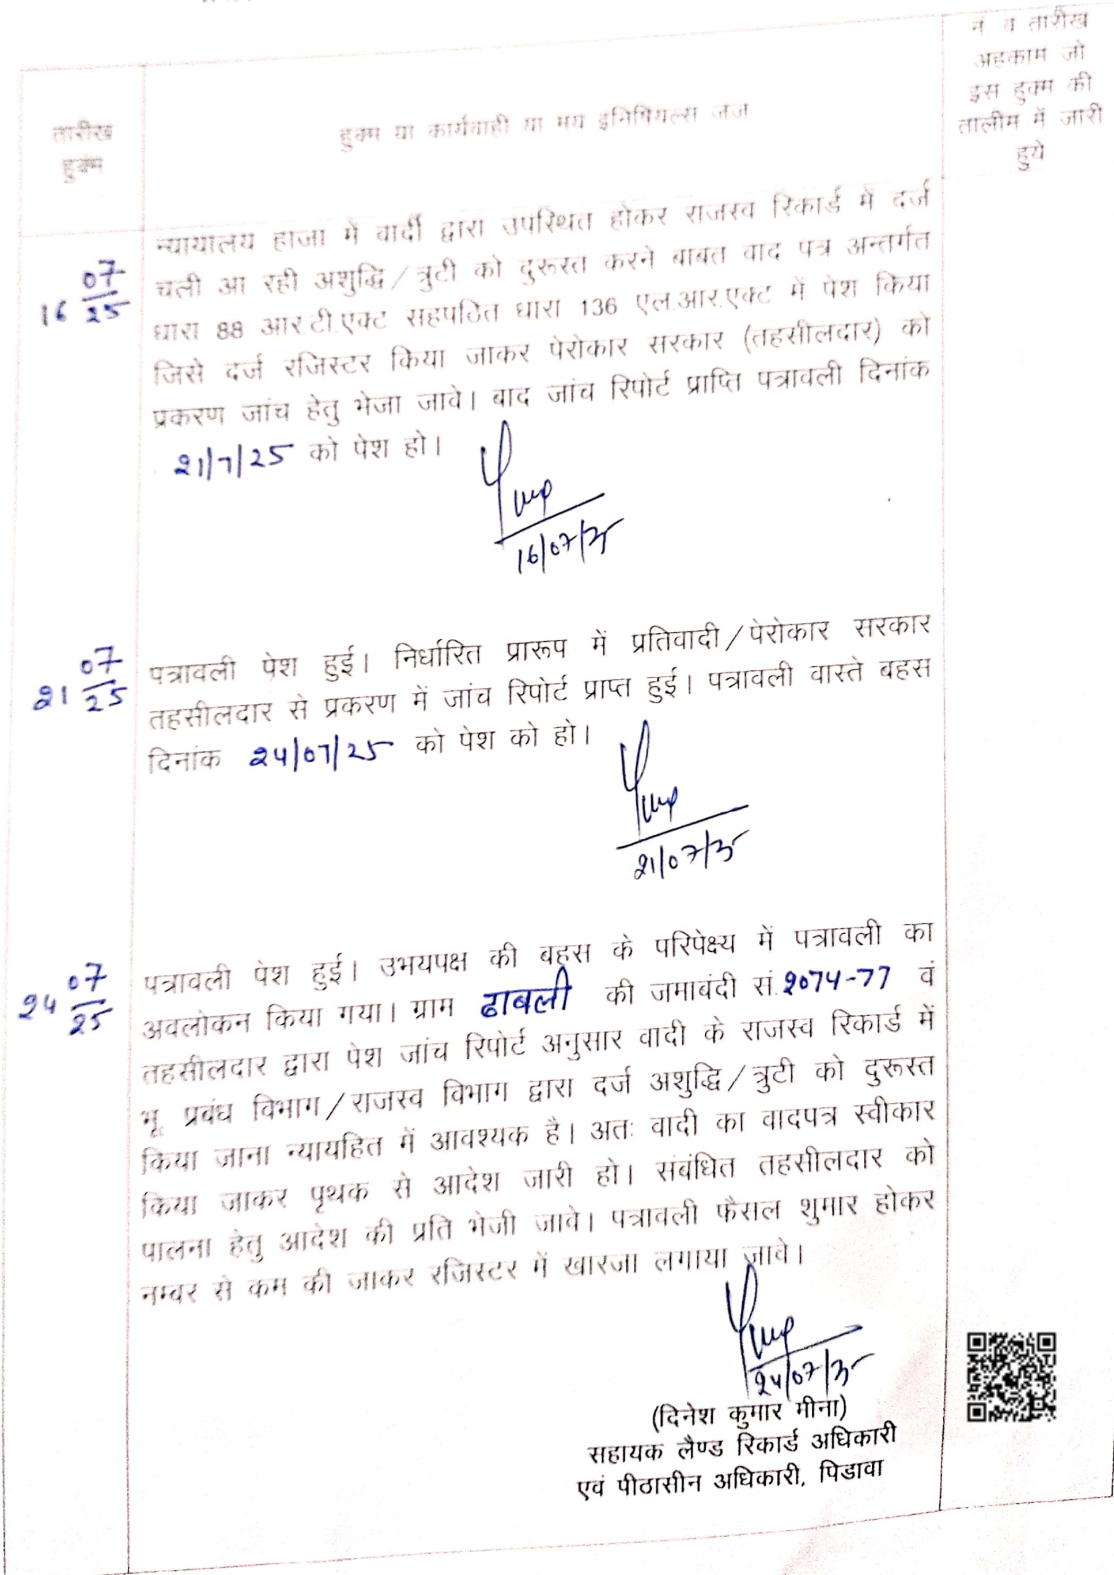 नं व तारीख
अहकाम जो
इस हुक्म की
तालीम में जारी
हुये
तारीख
हुक्म
हुक्म या कार्यवाही या मय इनिषियल्स जज
16 07/25
न्यायालय हाजा में वादी द्वारा उपस्थित होकर राजस्व रिकार्ड में दर्ज
चली आ रही अशुद्धि/त्रुटी को दुरूस्त करने बाबत वाद पत्र अन्तर्गत
धारा 88 आर.टी.एक्ट सहपठित धारा 136 एल.आर.एक्ट में पेश किया
जिसे दर्ज रजिस्टर किया जाकर पेरोकार सरकार (तहसीलदार) को
प्रकरण जांच हेतु भेजा जावे। बाद जांच रिपोर्ट प्राप्ति पत्रावली दिनांक
21/7/25 को पेश हो।
16/07/25
21 07/25
पत्रावली पेश हुई। निर्धारित प्रारूप में प्रतिवादी/पेरोकार सरकार
तहसीलदार से प्रकरण में जांच रिपोर्ट प्राप्त हुई। पत्रावली वास्ते बहस
दिनांक 24/07/25 को पेश को हो।
21/07/25
24 07/25
पत्रावली पेश हुई। उभयपक्ष की बहस के परिपेक्ष्य में पत्रावली का
अवलोकन किया गया। ग्राम ढाबली की जमाबंदी सं. 2074-77 वं
तहसीलदार द्वारा पेश जांच रिपोर्ट अनुसार वादी के राजस्व रिकार्ड में
भू. प्रबंध विभाग/राजस्व विभाग द्वारा दर्ज अशुद्धि/त्रुटी को दुरूस्त
किया जाना न्यायहित में आवश्यक है। अतः वादी का वादपत्र स्वीकार
किया जाकर पृथक से आदेश जारी हो। संबंधित तहसीलदार को
पालना हेतु आदेश की प्रति भेजी जावे। पत्रावली फैसल शुमार होकर
नम्बर से कम की जाकर रजिस्टर में खारजा लगाया जावे।
24/07/25
(दिनेश कुमार मीना)
सहायक लैण्ड रिकार्ड अधिकारी
एवं पीठासीन अधिकारी, पिडावा